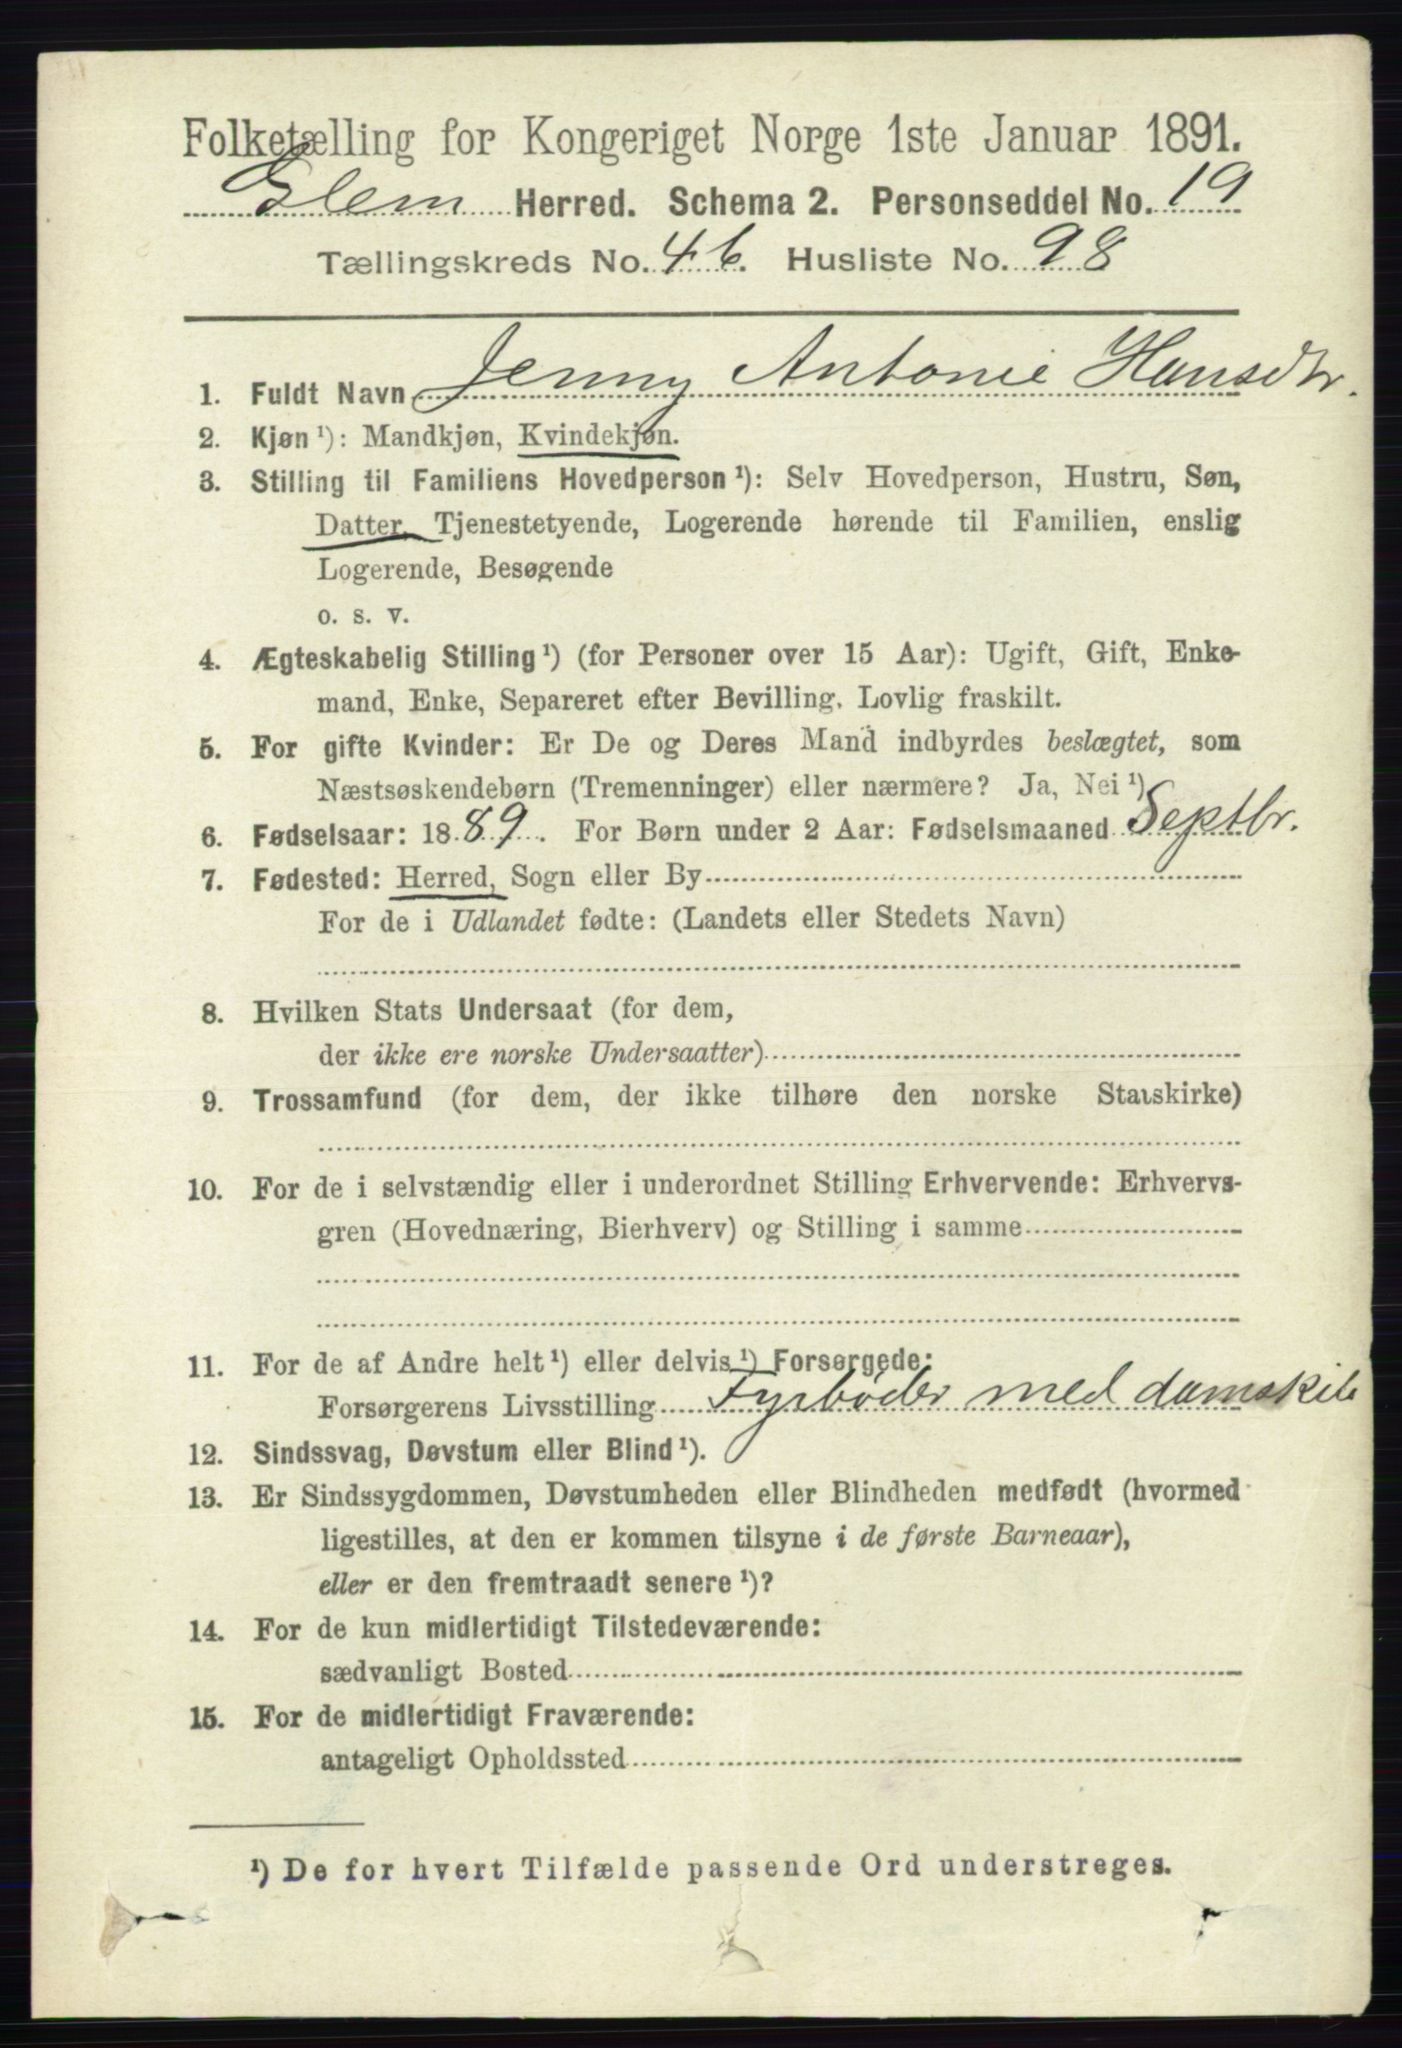 Folketælling for Kongeriget Norge 1ste Januar 1891.
Glem Herred. Schema 2. Personseddel No. 19
Tællingskreds No. 46. Husliste No. 98
1. Fuldt Navn Jenny Antonie Hansdtr.
2. Kjøn ¹): Mandkjøn, Kvindekjøn.
3. Stilling til Familiens Hovedperson ¹): Selv Hovedperson, Hustru, Søn,
Datter, Tjenestetyende, Logerende hørende til Familien, enslig
Logerende, Besøgende
o. s. v.
4. Ægteskabelig Stilling ¹) (for Personer over 15 Aar): Ugift, Gift, Enke-
mand, Enke, Separeret efter Bevilling. Lovlig fraskilt.
5. For gifte Kvinder: Er De og Deres Mand indbyrdes beslægtet, som
Næstsøskendebørn (Tremenninger) eller nærmere? Ja, Nei ¹)
6. Fødselsaar: 1889. For Børn under 2 Aar: Fødselsmaaned Septbr.
7. Fødested: Herred, Sogn eller By
For de i Udlandet fødte: (Landets eller Stedets Navn)
8. Hvilken Stats Undersaat (for dem,
der ikke ere norske Undersaatter)
9. Trossamfund (for dem, der ikke tilhøre den norske Statskirke)
10. For de i selvstændig eller i underordnet Stilling Erhvervende: Erhvervs-
gren (Hovednæring, Bierhverv) og Stilling i samme
11. For de af Andre helt ¹) eller delvis ¹) Forsørgede:
Forsørgerens Livsstilling Fyrbøder med damskib
12. Sindssvag, Døvstum eller Blind ¹).
13. Er Sindssygdommen, Døvstumheden eller Blindheden medfødt (hvormed
ligestilles, at den er kommen tilsyne i de første Barneaar),
eller er den fremtraadt senere ¹)?
14. For de kun midlertidigt Tilstedeværende:
sædvanligt Bosted
15. For de midlertidigt Fraværende:
antageligt Opholdssted
¹) De for hvert Tilfælde passende Ord understreges.